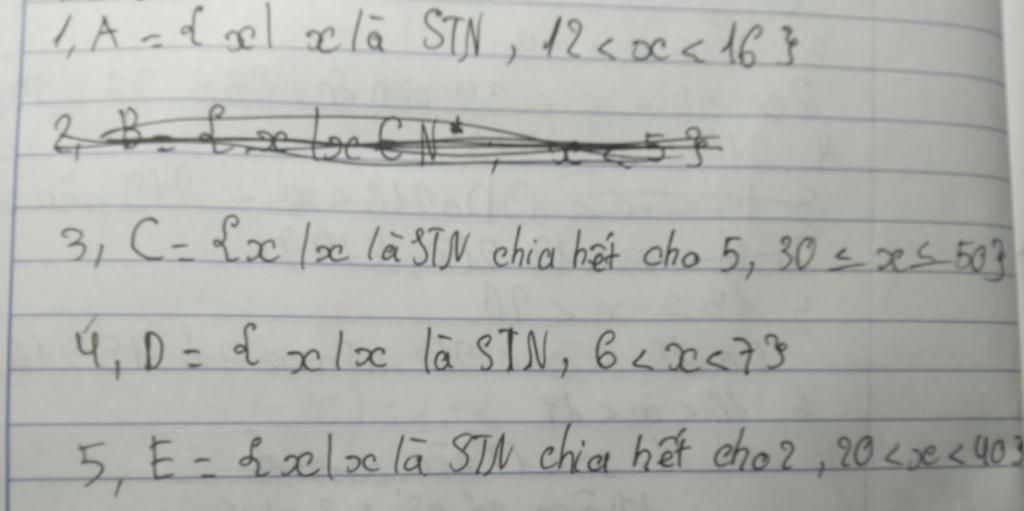 1, A = { x | x là STN, 12 < x < 16 }
2, B = { x | x ∈ N*, x < 5 }
3, C = { x | x là STN chia hết cho 5, 30 ≤ x ≤ 50 }
4, D = { x | x là STN, 6 < x < 7 }
5, E = { x | x là STN chia hết cho 2, 20 < x < 40 }